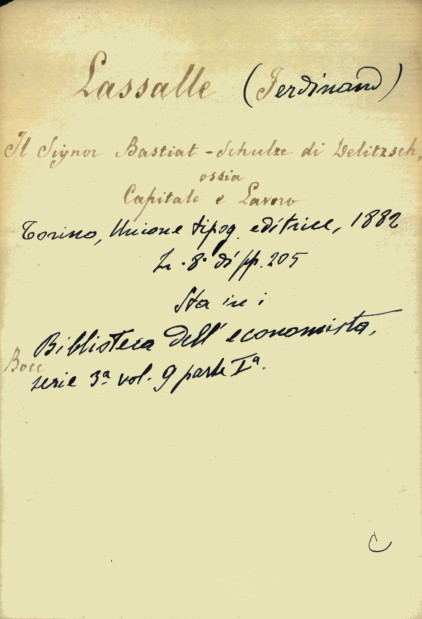 Lassalle (Ferdinand)
Il Signor Bastiat-Schulze di Delitzsch,
ossia
Capitale e Lavoro
Torino, Unione tipog. editrice, 1882
In-8° di pp. 205
Sta in:
Biblioteca dell'economista,
Bocc
serie 3ª vol. 9 parte Iª.
C